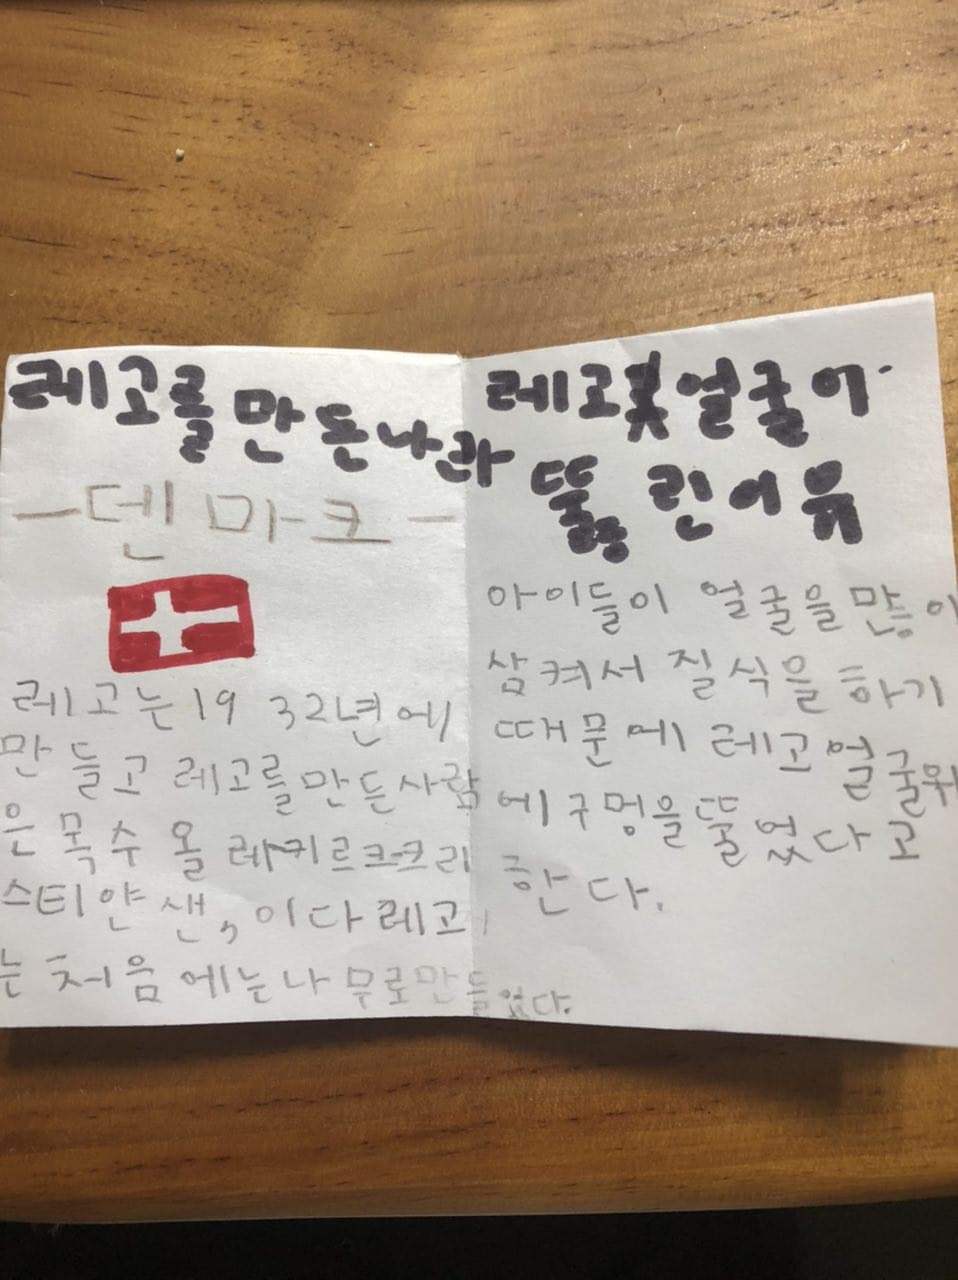 레고를만든나라
-덴마크-
레고는 1932년에
만들고 레고를만든사람
은 목수 올레키르크크리
스티얀샌, 이다 레고
는 처음에는나무로만들었다.
레고 얼굴이
뚫린이유
아이들이 얼굴을 많이
삼켜서 질식을 하기
때문에 레고얼굴위
에구멍을뚫었다고
한다.